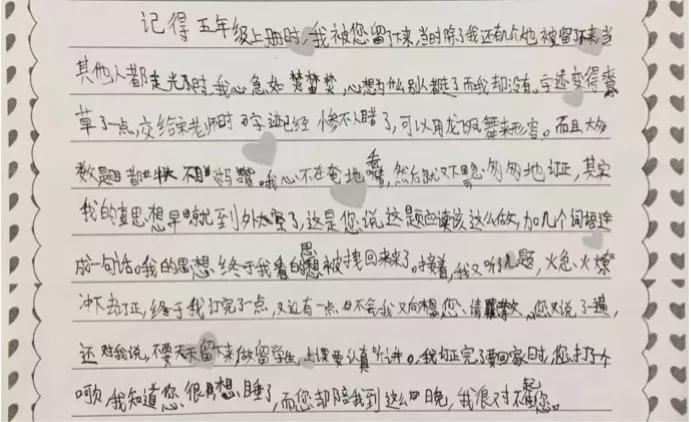 记得五年级上册时,我被您留下来,当时除了我还有几个也被留下来,当
其他人都走光了时,我心急如焚焚焚,心想为什么别人都走了而我却没有。字迹变得潦
草了一点,交给宋老师时字迹已经惨不人睹了,可以用龙飞凤舞来形容。而且大多
数题目都
我心不在焉地看,然后就又下急匆匆地订正,其实
我的真思想早就到外太空了,这是您说这题应该这么做,加几个词语连
成一句话。我的思想终于我看的思想被拽回来了。接着,我又听了几题,火急火燎
冲下去订正,终于我订完了一点,又还有一点不会,我又向您请教,您又说了一遍,
还对我说,不要天天留下来做留学生,上课要认真听讲。我订正完了要回家时,您打了个
哈欠,我知道您很想睡了,而您却陪我到这么晚,我很对不起您。